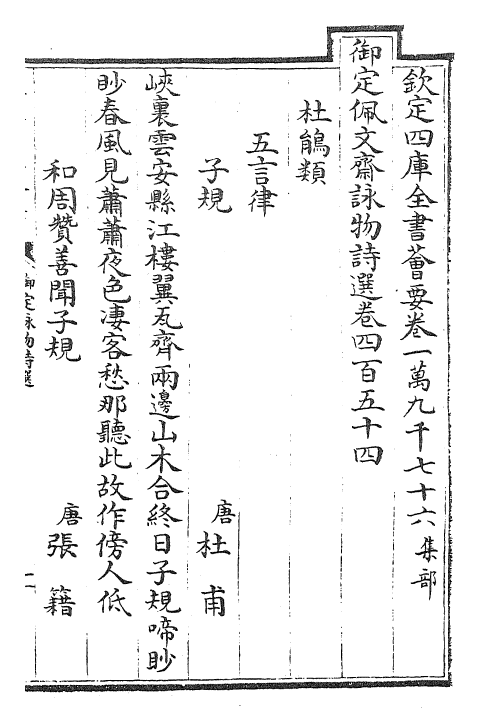 欽定四庫全書薈要卷一萬九千七十六 集部
御定佩文齋詠物詩選卷四百五十四
杜鵑類
五言律
子規 唐 杜甫
峽裏雲安縣江樓翼瓦齊兩邊山木合終日子規啼眇
眇春風見蕭蕭夜色凄客愁那聽此故作傍人低
和周贊善聞子規 唐 張籍
御定詠物詩選